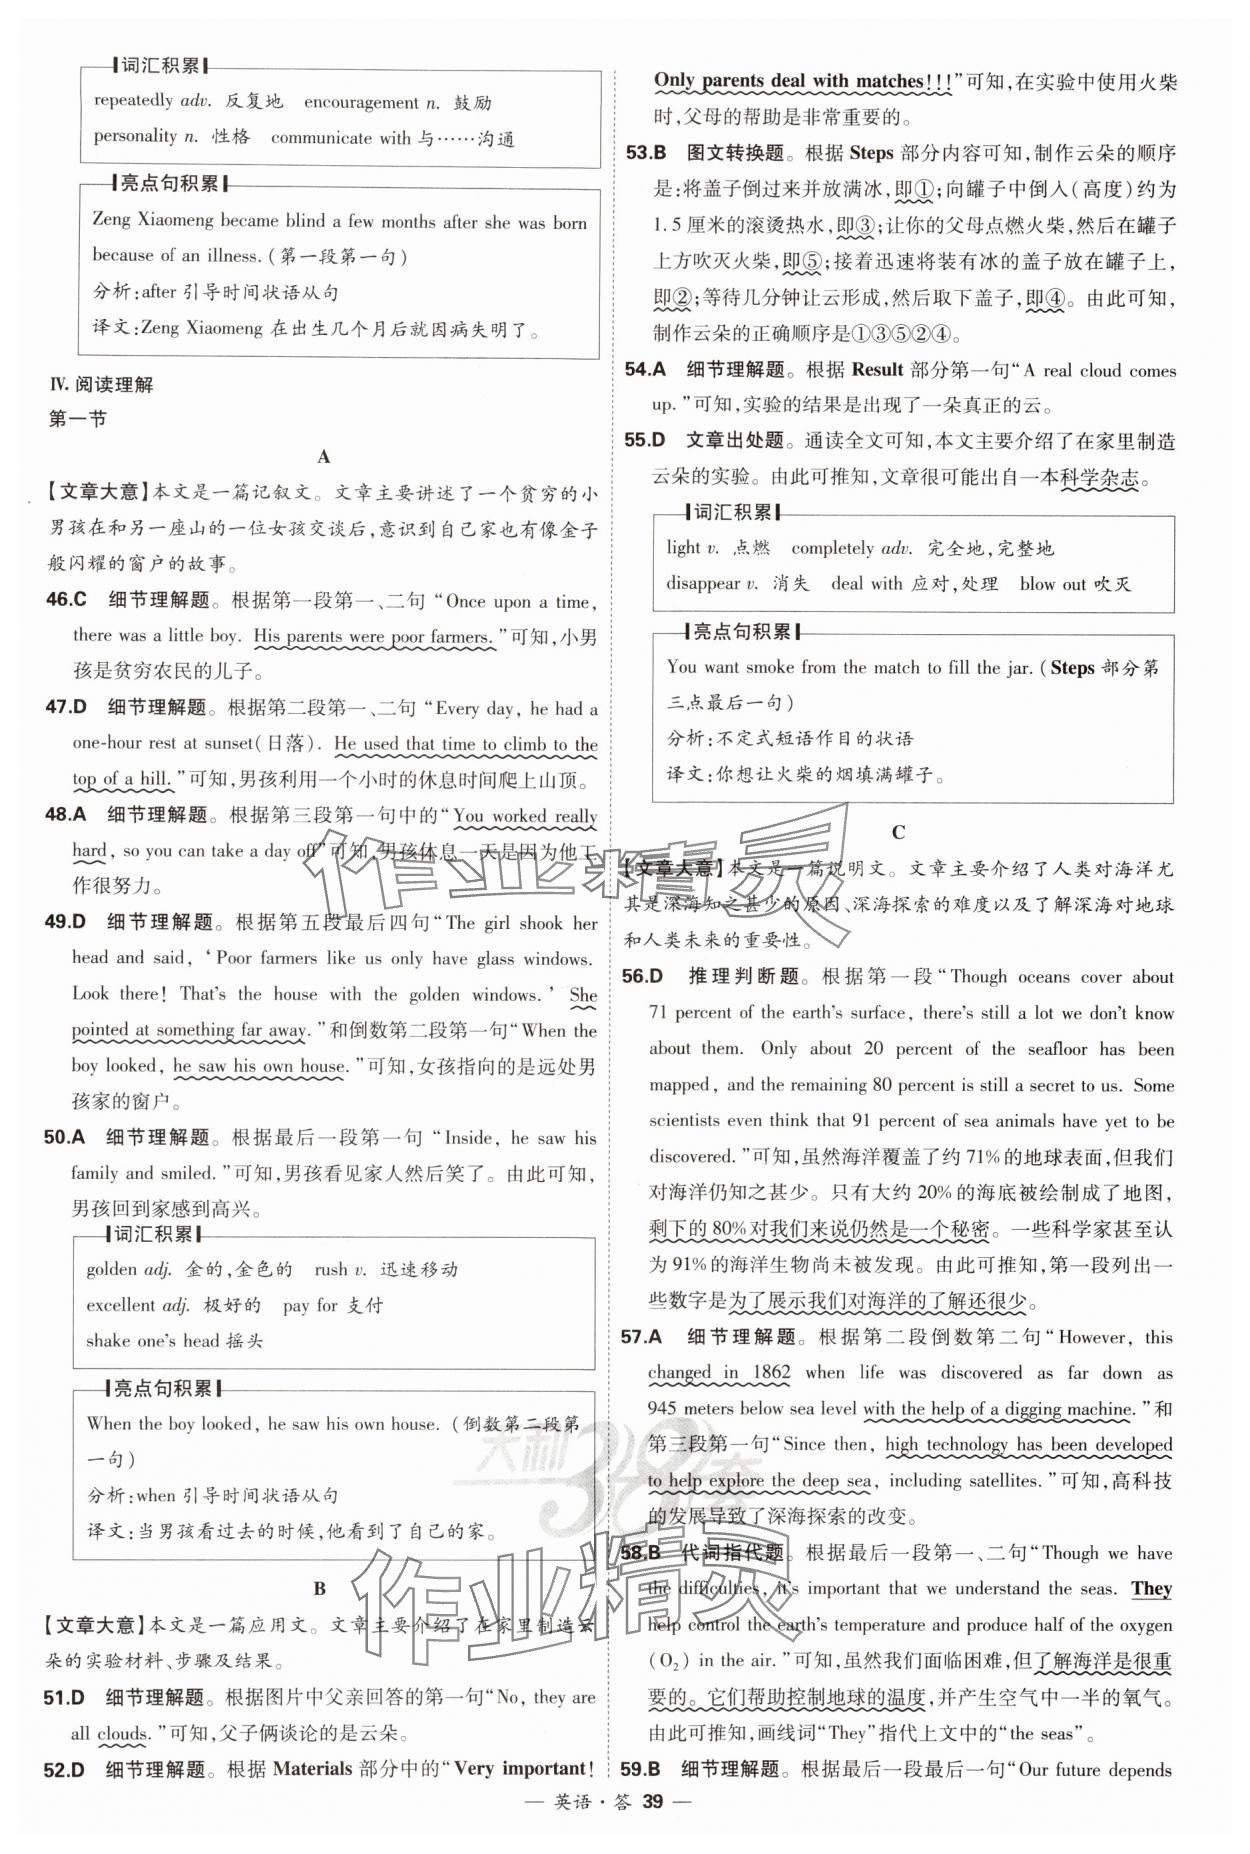 词汇积累
repeatedly adv. 反复地 encouragement n. 鼓励
personality n. 性格 communicate with 与……沟通
亮点句积累
Zeng Xiaomeng became blind a few months after she was born
because of an illness. (第一段第一句)
分析:after 引导时间状语从句
译文:Zeng Xiaomeng 在出生几个月后就因病失明了。
Ⅳ. 阅读理解
第一节
A
【文章大意】本文是一篇记叙文。文章主要讲述了一个贫穷的小
男孩在和另一座山的一位女孩交谈后,意识到自己家也有像金子
般闪耀的窗户的故事。
46.C 细节理解题。根据第一段第一、二句“Once upon a time,
there was a little boy. His parents were poor farmers.”可知,小男
孩是贫穷农民的儿子。
47.D 细节理解题。根据第二段第一、二句“Every day, he had a
one-hour rest at sunset(日落). He used that time to climb to the
top of a hill.”可知,男孩利用一个小时的休息时间爬上山顶。
48.A 细节理解题。根据第三段第一句中的“You worked really
hard, so you can take a day off”可知,男孩休息一天是因为他工
作很努力。
49.D 细节理解题。根据第五段最后四句“The girl shook her
head and said, ‘Poor farmers like us only have glass windows.
Look there! That's the house with the golden windows.’ She
pointed at something far away.”和倒数第二段第一句“When the
boy looked, he saw his own house.”可知,女孩指向的是远处男
孩家的窗户。
50.A 细节理解题。根据最后一段第一句“Inside, he saw his
family and smiled.”可知,男孩看见家人然后笑了。由此可知,
男孩回到家感到高兴。
词汇积累
golden adj. 金的,金色的 rush v. 迅速移动
excellent adj. 极好的 pay for 支付
shake one's head 摇头
亮点句积累
When the boy looked, he saw his own house. (倒数第二段第
一句)
分析:when 引导时间状语从句
译文:当男孩看过去的时候,他看到了自己的家。
B
【文章大意】本文是一篇应用文。文章主要介绍了在家里制造云
朵的实验材料、步骤及结果。
51.D 细节理解题。根据图片中父亲回答的第一句“No, they are
all clouds.”可知,父子俩谈论的是云朵。
52.D 细节理解题。根据 Materials 部分中的“Very important!
Only parents deal with matches!!!”可知,在实验中使用火柴
时,父母的帮助是非常重要的。
53.B 图文转换题。根据 Steps 部分内容可知,制作云朵的顺序
是:将盖子倒过来并放满冰,即①;向罐子中倒入(高度)约为
1.5 厘米的滚烫热水,即③;让你的父母点燃火柴,然后在罐子
上方吹灭火柴,即⑤;接着迅速将装有冰的盖子放在罐子上,
即②;等待几分钟让云形成,然后取下盖子,即④。由此可知,
制作云朵的正确顺序是①③⑤②④。
54.A 细节理解题。根据 Result 部分第一句“A real cloud comes
up.”可知,实验的结果是出现了一朵真正的云。
55.D 文章出处题。通读全文可知,本文主要介绍了在家里制造
云朵的实验。由此可推知,文章很可能出自一本科学杂志。
词汇积累
light v. 点燃 completely adv. 完全地,完整地
disappear v. 消失 deal with 应对,处理 blow out 吹灭
亮点句积累
You want smoke from the match to fill the jar. (Steps 部分第
三点最后一句)
分析:不定式短语作目的状语
译文:你想让火柴的烟填满罐子。
C
【文章大意】本文是一篇说明文。文章主要介绍了人类对海洋尤
其是深海知之甚少的原因、深海探索的难度以及了解深海对地球
和人类未来的重要性。
56.D 推理判断题。根据第一段“Though oceans cover about
71 percent of the earth's surface, there's still a lot we don't know
about them. Only about 20 percent of the seafloor has been
mapped, and the remaining 80 percent is still a secret to us. Some
scientists even think that 91 percent of sea animals have yet to be
discovered.”可知,虽然海洋覆盖了约 71%的地球表面,但我们
对海洋仍知之甚少。只有大约 20%的海底被绘制成了地图,
剩下的 80%对我们来说仍然是一个秘密。一些科学家甚至认
为 91%的海洋生物尚未被发现。由此可推知,第一段列出一
些数字是为了展示我们对海洋的了解还很少。
57.A 细节理解题。根据第二段倒数第二句“However, this
changed in 1862 when life was discovered as far down as
945 meters below sea level with the help of a digging machine.”和
第三段第一句“Since then, high technology has been developed
to help explore the deep sea, including satellites.”可知,高科技
的发展导致了深海探索的改变。
58.B 代词指代题。根据最后一段第一、二句“Though we have
the difficulties, it's important that we understand the seas. They
help control the earth's temperature and produce half of the oxygen
(O₂) in the air.”可知,虽然我们面临困难,但了解海洋是很重
要的。它们帮助控制地球的温度,并产生空气中一半的氧气。
由此可推知,画线词“They”指代上文中的“the seas”。
59.B 细节理解题。根据最后一段最后一句“Our future depends
作业精灵
天利38套
作业精灵
— 英语·答 39 —